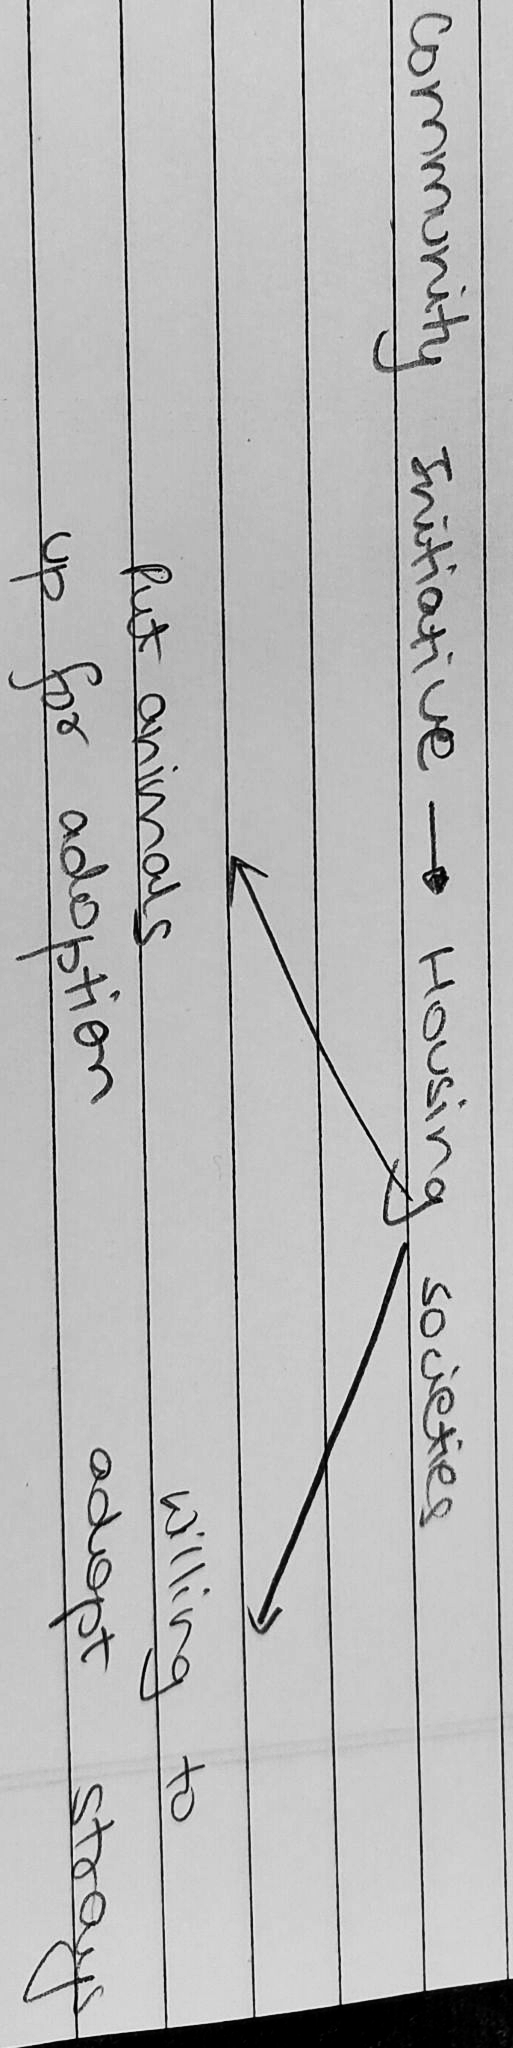 Community Initiative → Housing societies
Put animals
up for adoption
willing to
adopt strays